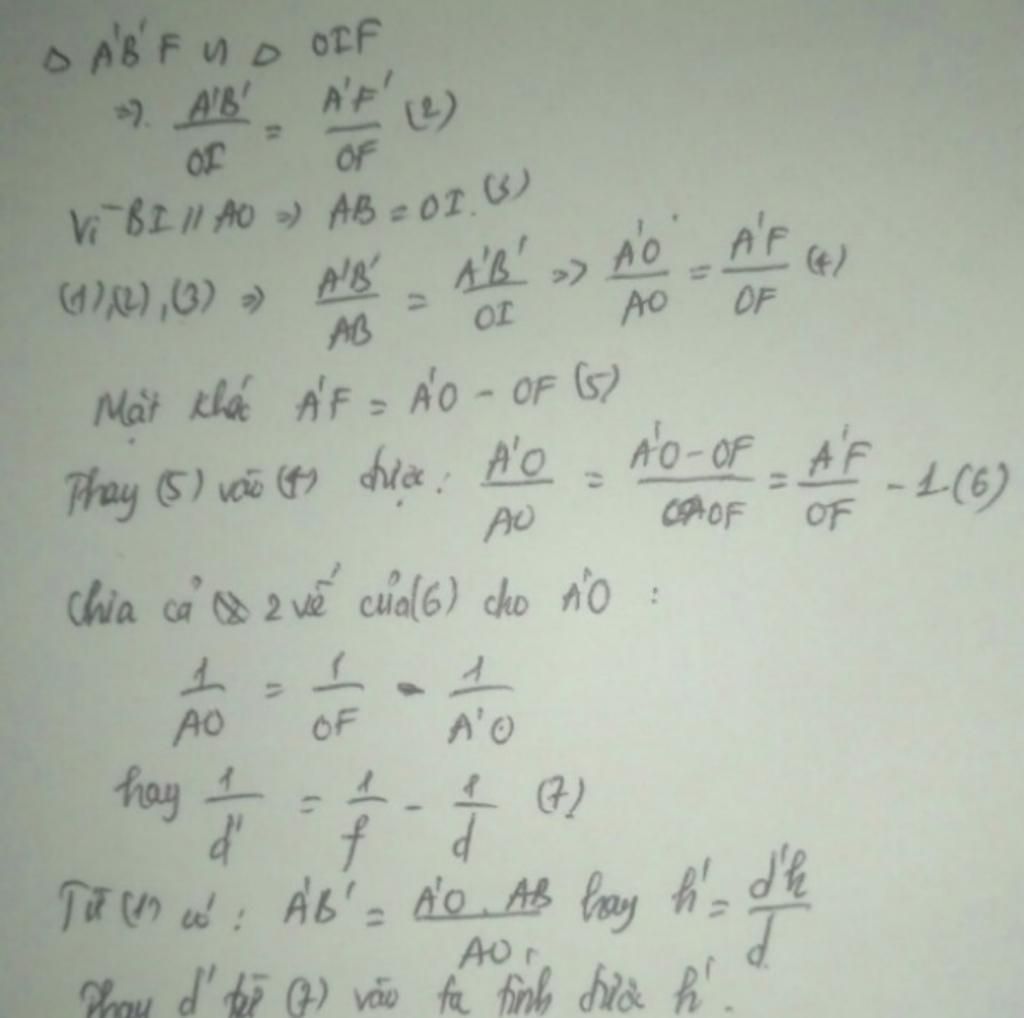 Δ A'B'F ∽ Δ OIF
=> A'B'/OI = A'F'/OF (2)
Vì BI // AO => AB = OI. (3)
(1),(2),(3) => A'B'/AB = A'B'/OI => A'O/AO = A'F/OF (4)
Mặt khác A'F = A'O - OF (5)
Thay (5) vào (4) được: A'O/AO = A'O-OF/OF = A'F/OF - 1 (6)
Chia cả 2 vế của (6) cho A'O :
1/AO = 1/OF - 1/A'O
hay 1/d' = 1/f - 1/d (7)
Từ (1) có: A'B' = A'O . AB/AO hay h' = d'h/d
Thay d' từ (7) vào ta tính được h'.